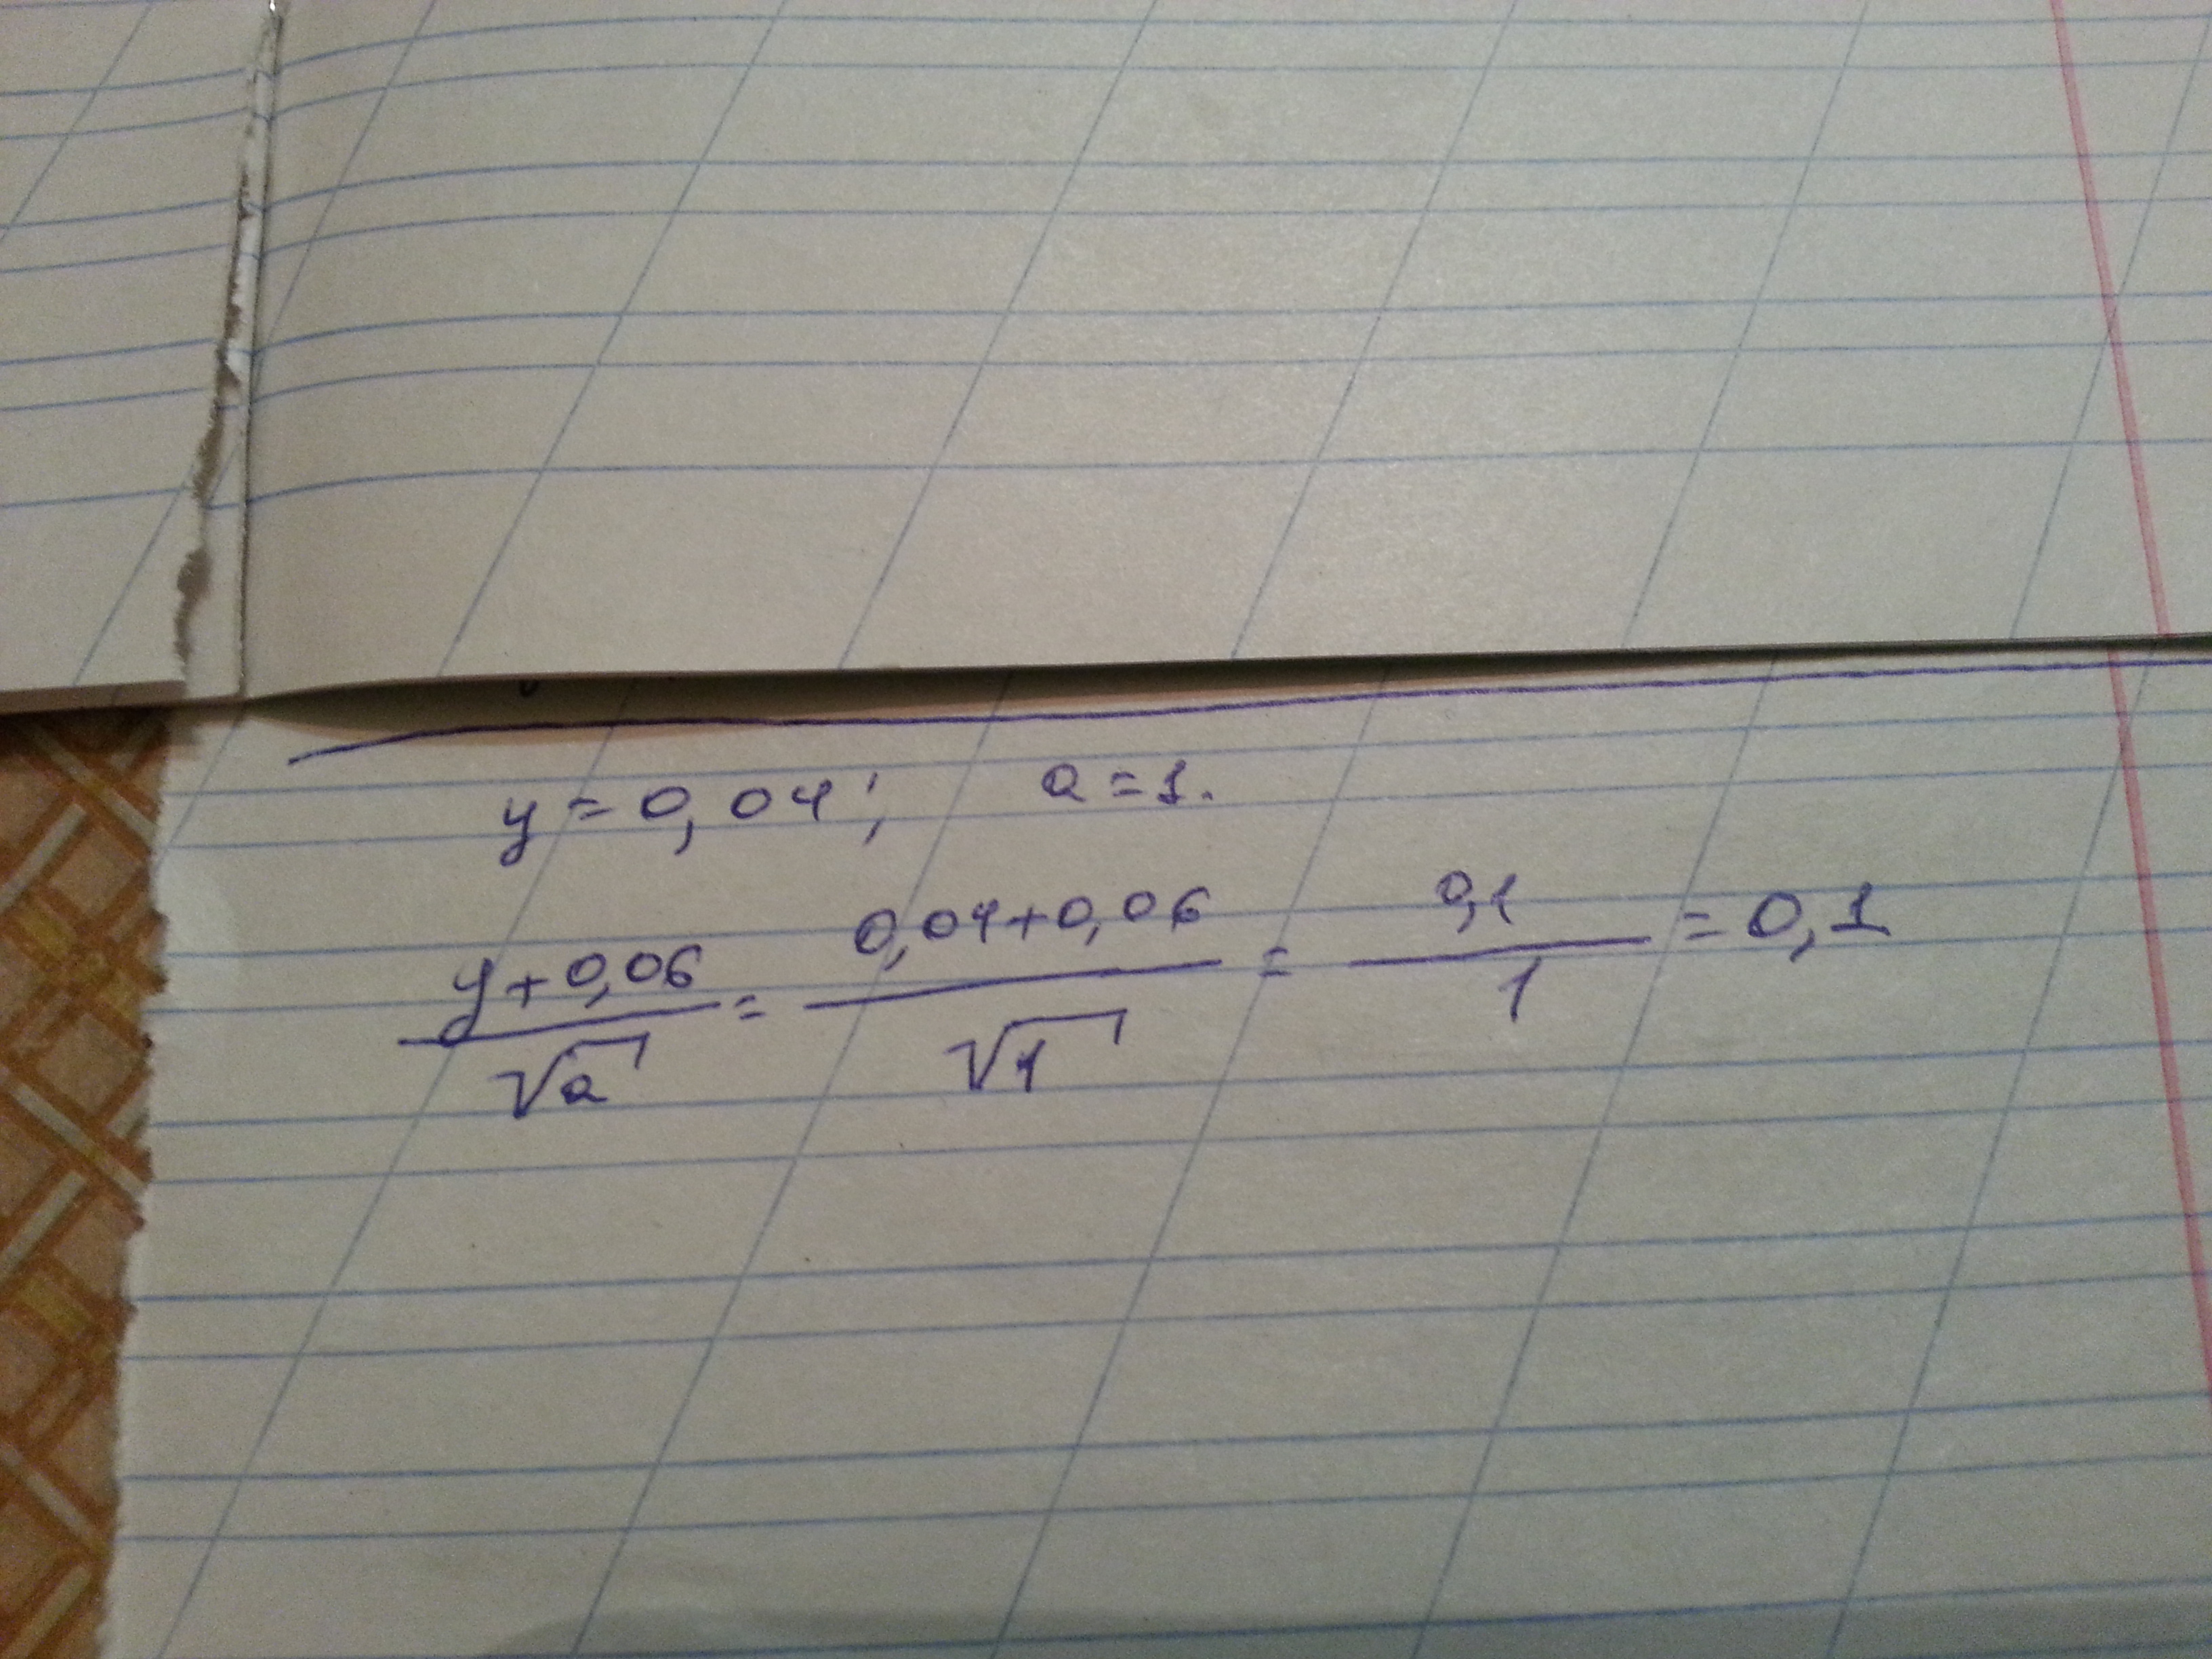 y = 0,04; a = 1.
(y + 0,06)/√a = (0,04 + 0,06)/√1 = 0,1/1 = 0,1